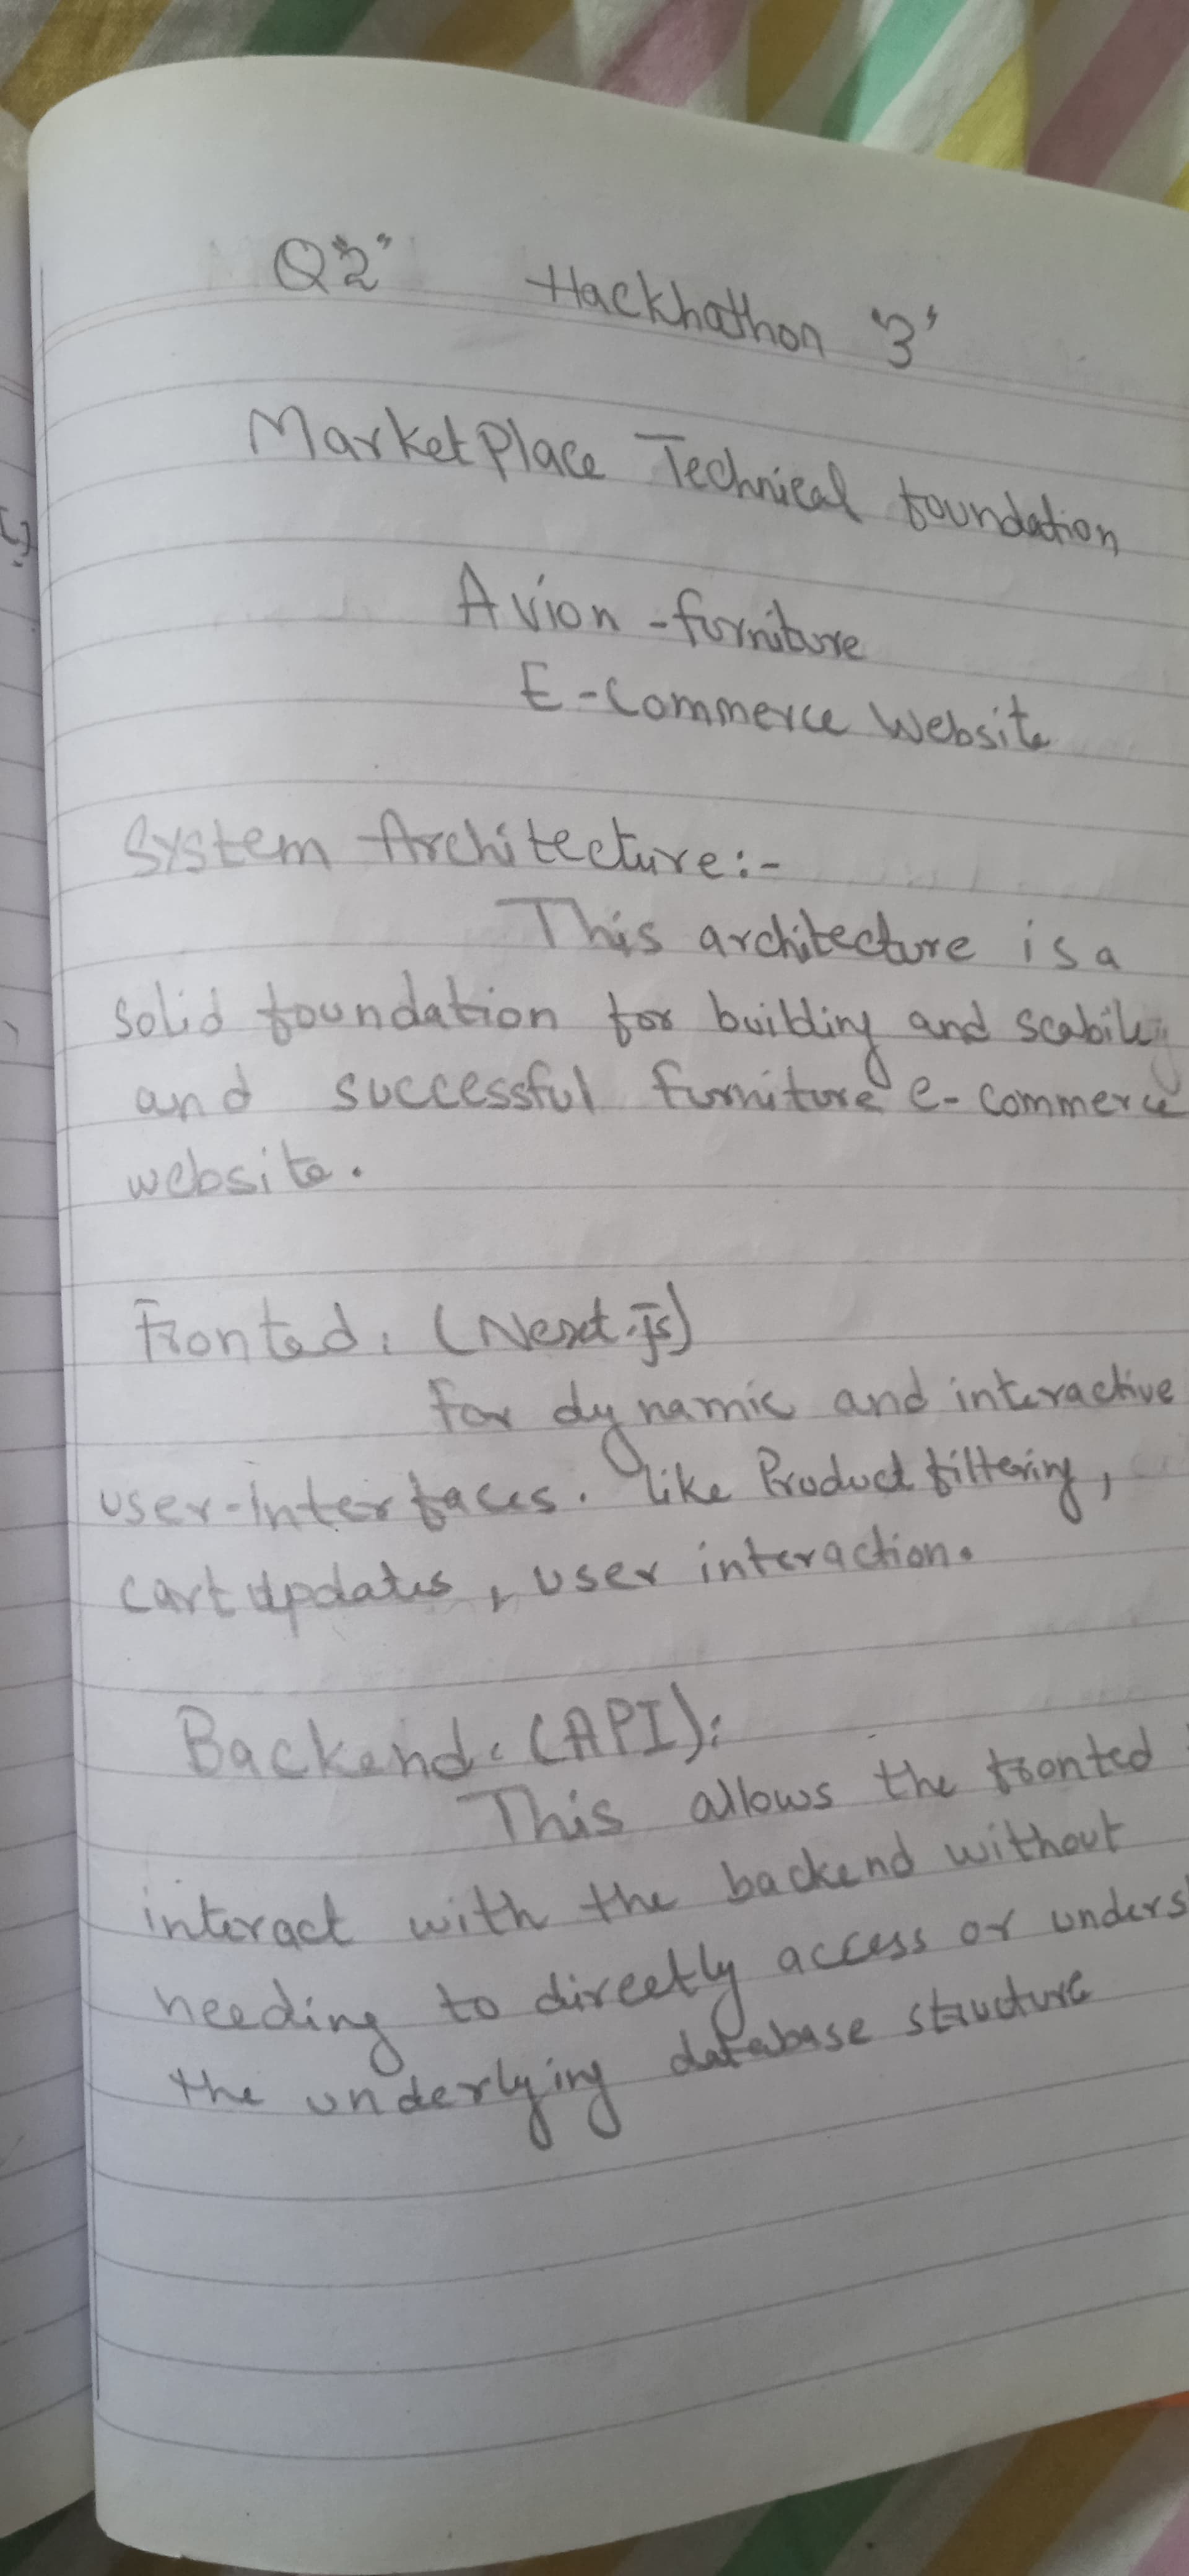 Q"2" Hackhathon "3"
MarketPlace Technical foundation
Avion - furniture
E-Commerce Website
System Architecture:-
This architecture is a
solid foundation for building and scability
and successful furniture e-commerce
website.
Fronted: (Next.js)
for dynamic and interactive
user-interfaces. like Product filtering,
cart updates, user interaction.
Backend: (API):
This allows the fronted
interact with the backend without
needing to directly access or unders
the underlying database structure